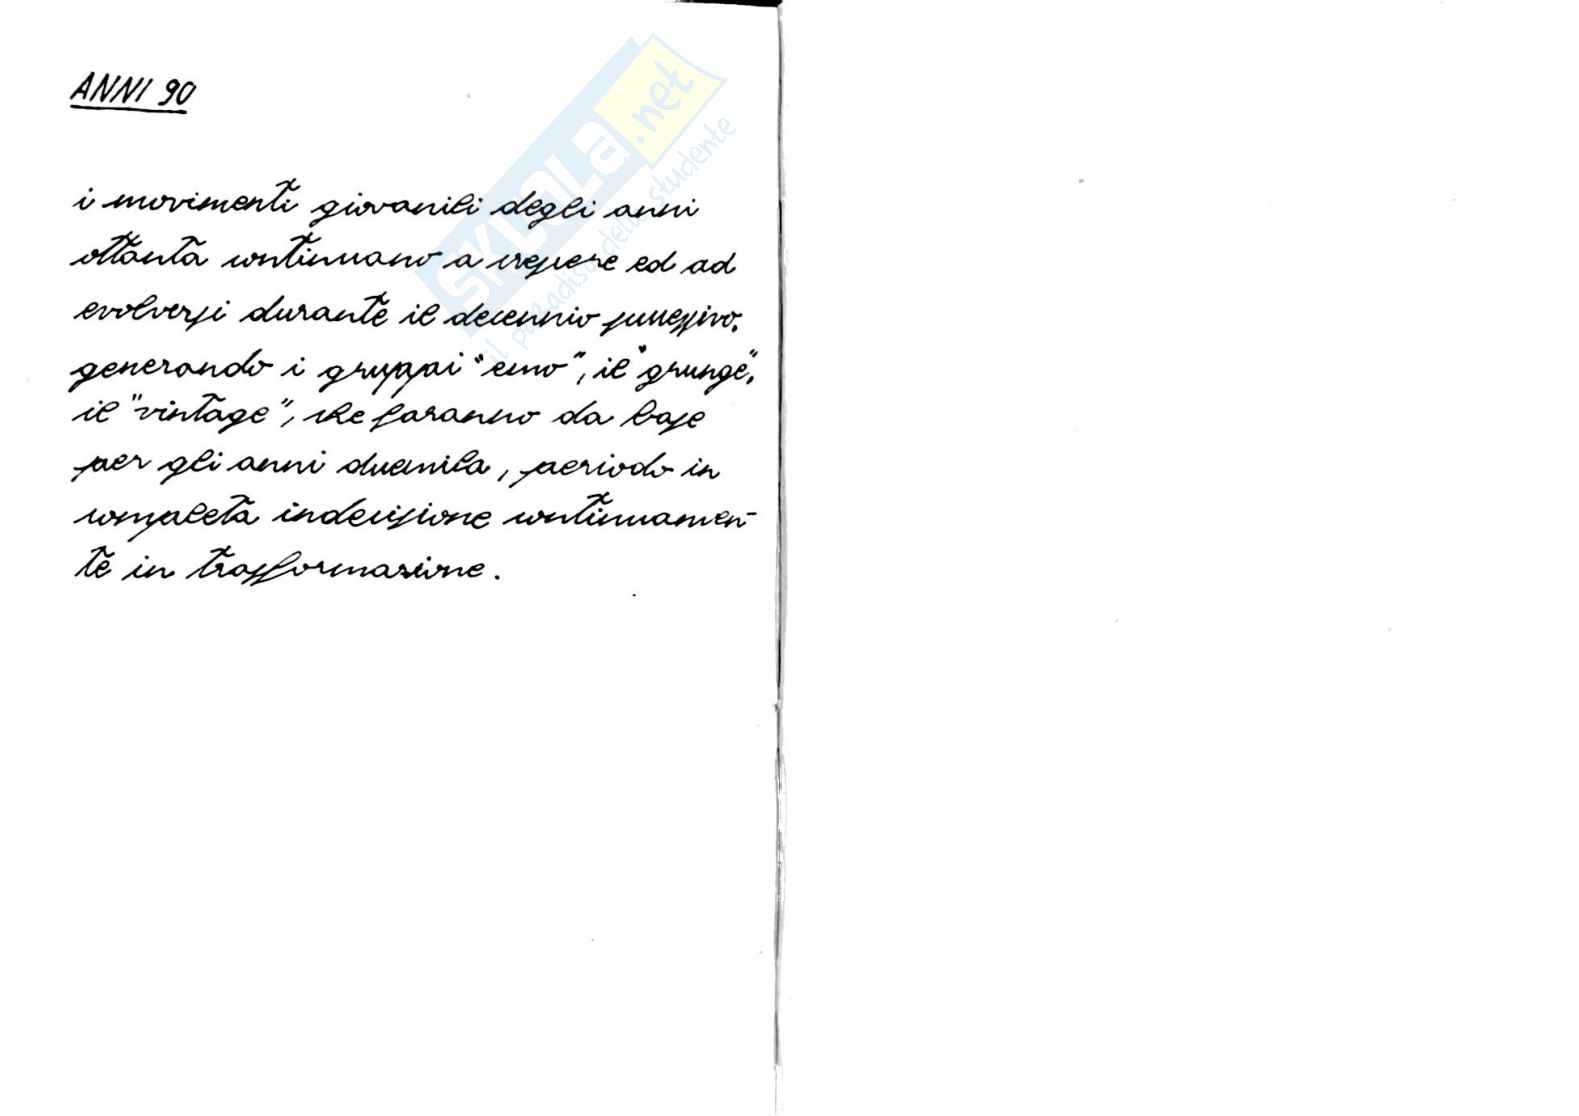 ANNI 90
i movimenti giovanili degli anni
ottanta continuano a crescere ed ad
evolversi durante il decennio successivo,
generando i gruppi "emo", il "grunge",
il "vintage", che faranno da base
per gli anni duemila, periodo in
completa indecisione continuamen-
te in trasformazione.
SKUOLA.net
il paradiso dello studente